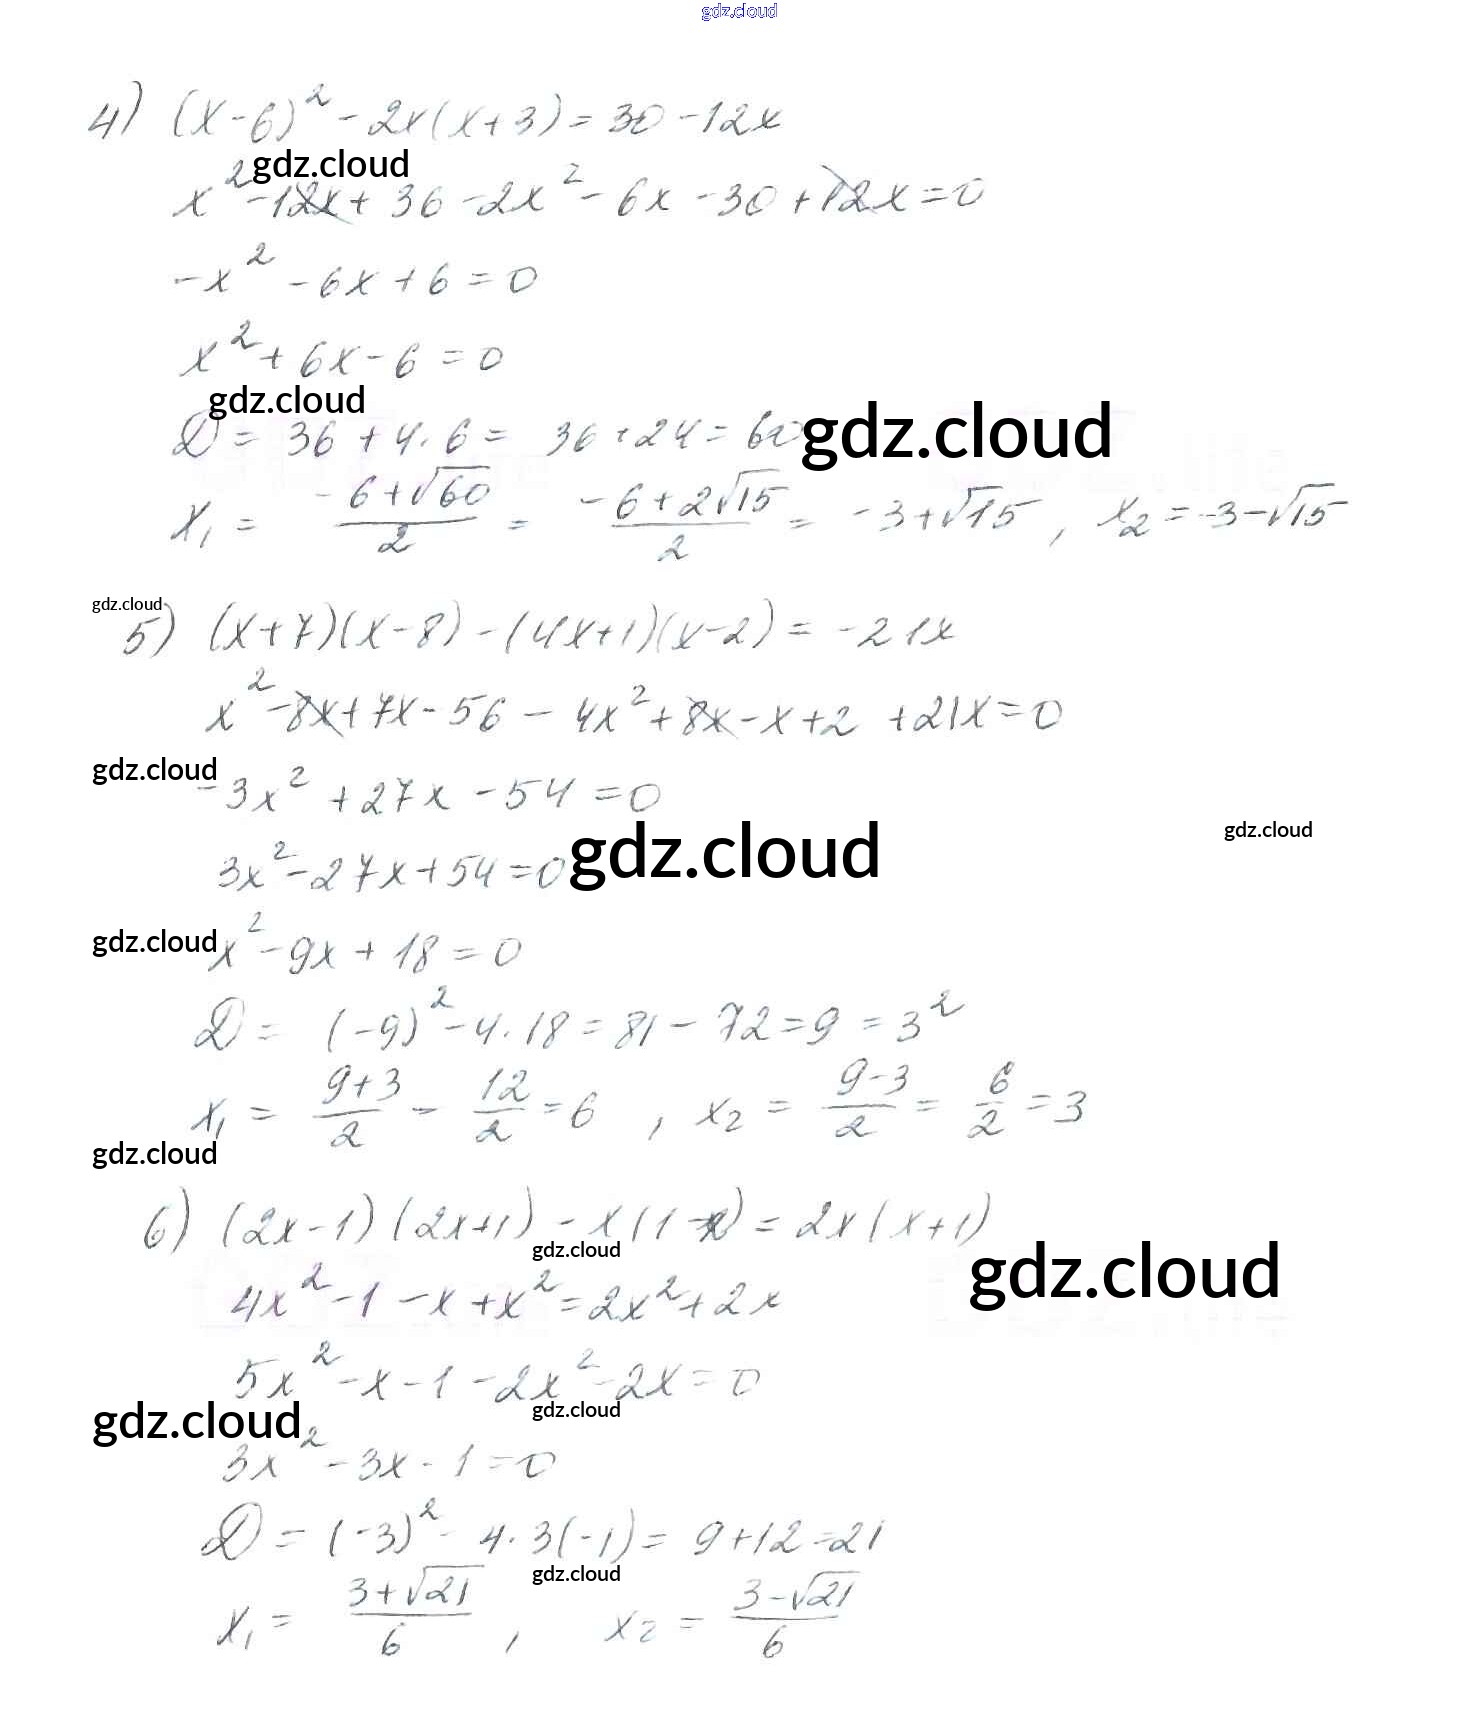 gdz.cloud
4) (x-6)² - 2x(x+3) = 30 - 12x
gdz.cloud
x² - 12x + 36 - 2x² - 6x - 30 + 12x = 0
-x² - 6x + 6 = 0
x² + 6x - 6 = 0
gdz.cloud
D = 36 + 4·6 = 36 + 24 = 60
gdz.cloud
x₁ = (-6+√60)/2 = (-6+2√15)/2 = -3+√15, x₂ = -3-√15
gdz.cloud
5) (x+7)(x-8) - (4x+1)(x-2) = -21x
x² - 8x + 7x - 56 - 4x² + 8x - x + 2 + 21x = 0
gdz.cloud
-3x² + 27x - 54 = 0
gdz.cloud
3x² - 27x + 54 = 0
gdz.cloud
gdz.cloud
x² - 9x + 18 = 0
D = (-9)² - 4·18 = 81 - 72 = 9 = 3²
x₁ = (9+3)/2 = 12/2 = 6, x₂ = (9-3)/2 = 6/2 = 3
gdz.cloud
6) (2x-1)(2x+1) - x(1-x) = 2x(x+1)
gdz.cloud
gdz.cloud
4x² - 1 - x + x² = 2x² + 2x
5x² - x - 1 - 2x² - 2x = 0
gdz.cloud
gdz.cloud
3x² - 3x - 1 = 0
D = (-3)² - 4·3(-1) = 9 + 12 = 21
gdz.cloud
x₁ = (3+√21)/6, x₂ = (3-√21)/6